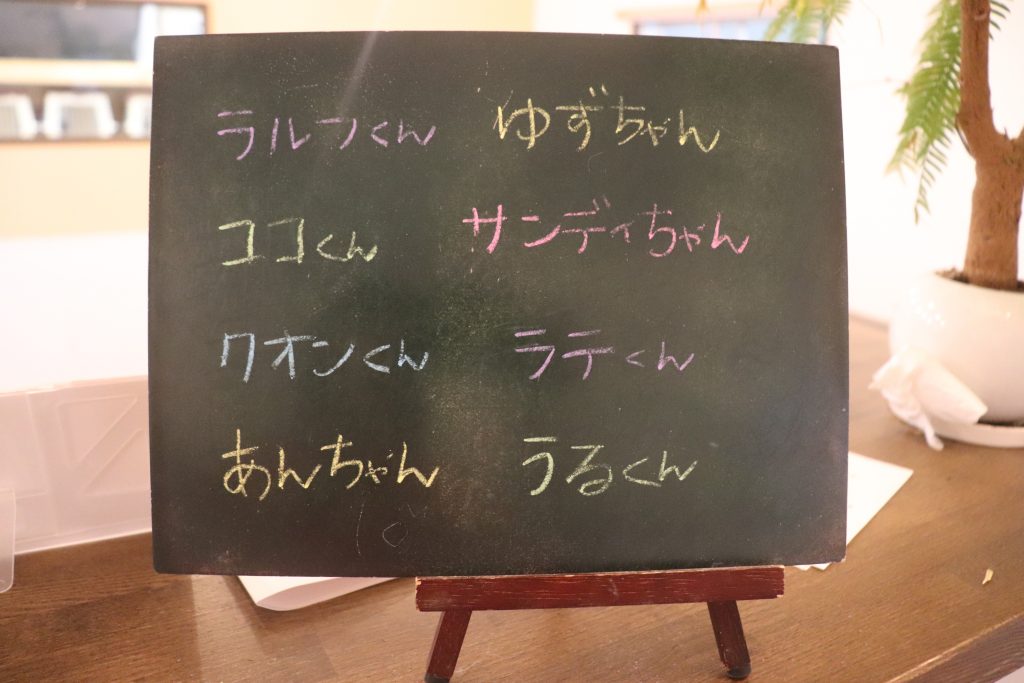 ラルフくん ゆずちゃん
ココくん サンディちゃん
クオンくん ラテくん
あんちゃん うるくん